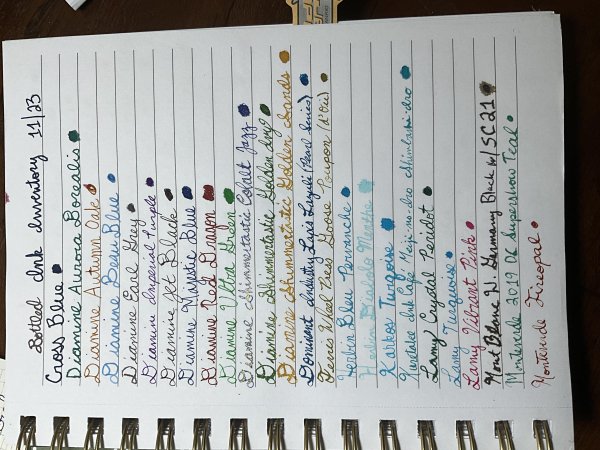 Bottled Ink Inventory 11/23
Cross Blue
Diamine Aurora Borealis
Diamine Autumn Oak
Diamine Beau Blue
Diamine Earl Grey
Diamine Imperial Purple
Diamine Jet Black
Diamine Majestic Blue
Diamine Red Dragon
Diamine Ultra Green
Diamine Shimmertastic Cobalt Jazz
Diamine Shimmertastic Golden Ivy
Diamine Shimmertastic Golden Sands
Dominant Industry Lapis Lazuli (Pearl Series)
Ferris Wheel Press Goose Poupon (
Herbin Bleu Pervenche
Herbin Diabolo Menthe
Karkos Turquoise
Kuretake Ink Cafe Meiji-no-Iro Shimbashi-iro
Lamy Crystal Peridot
Lamy Turquoise
Lamy Vibrant Pink
Mont Blanc Germany Black SC21
Monteverde 2019 DC Supershow Teal
Monteverde Fireopal